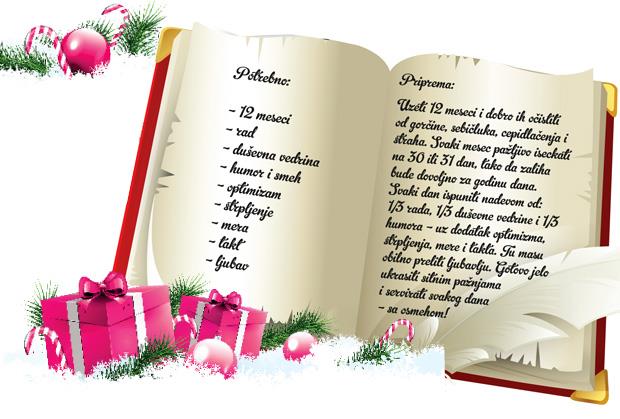 Potrebno:
- 12 meseci
- rad
- duševna vedrina
- humor i smeh
- optimizam
- štrpljenje
- mera
- takt
- ljubav
Priprema:
Uzeti 12 meseci i dobro ih očistiti
od gorčine, sebičluka, cepidlačenja i
straha. Svaki mesec pažljivo iseckati
na 30 ili 31 dan, tako da zaliha
bude dovoljno za godinu dana.
Svaki dan ispuniti nadevom od:
1/3 rada, 1/3 duševne vedrine i 1/3
humora - uz dodatak optimizma,
štrpljenja, mere i takta. Tu masu
obilno preliti ljubavlju. Gotovo jelo
ukrasiti sitnim pažnjama
i servirati svakog dana
- sa osmehom!